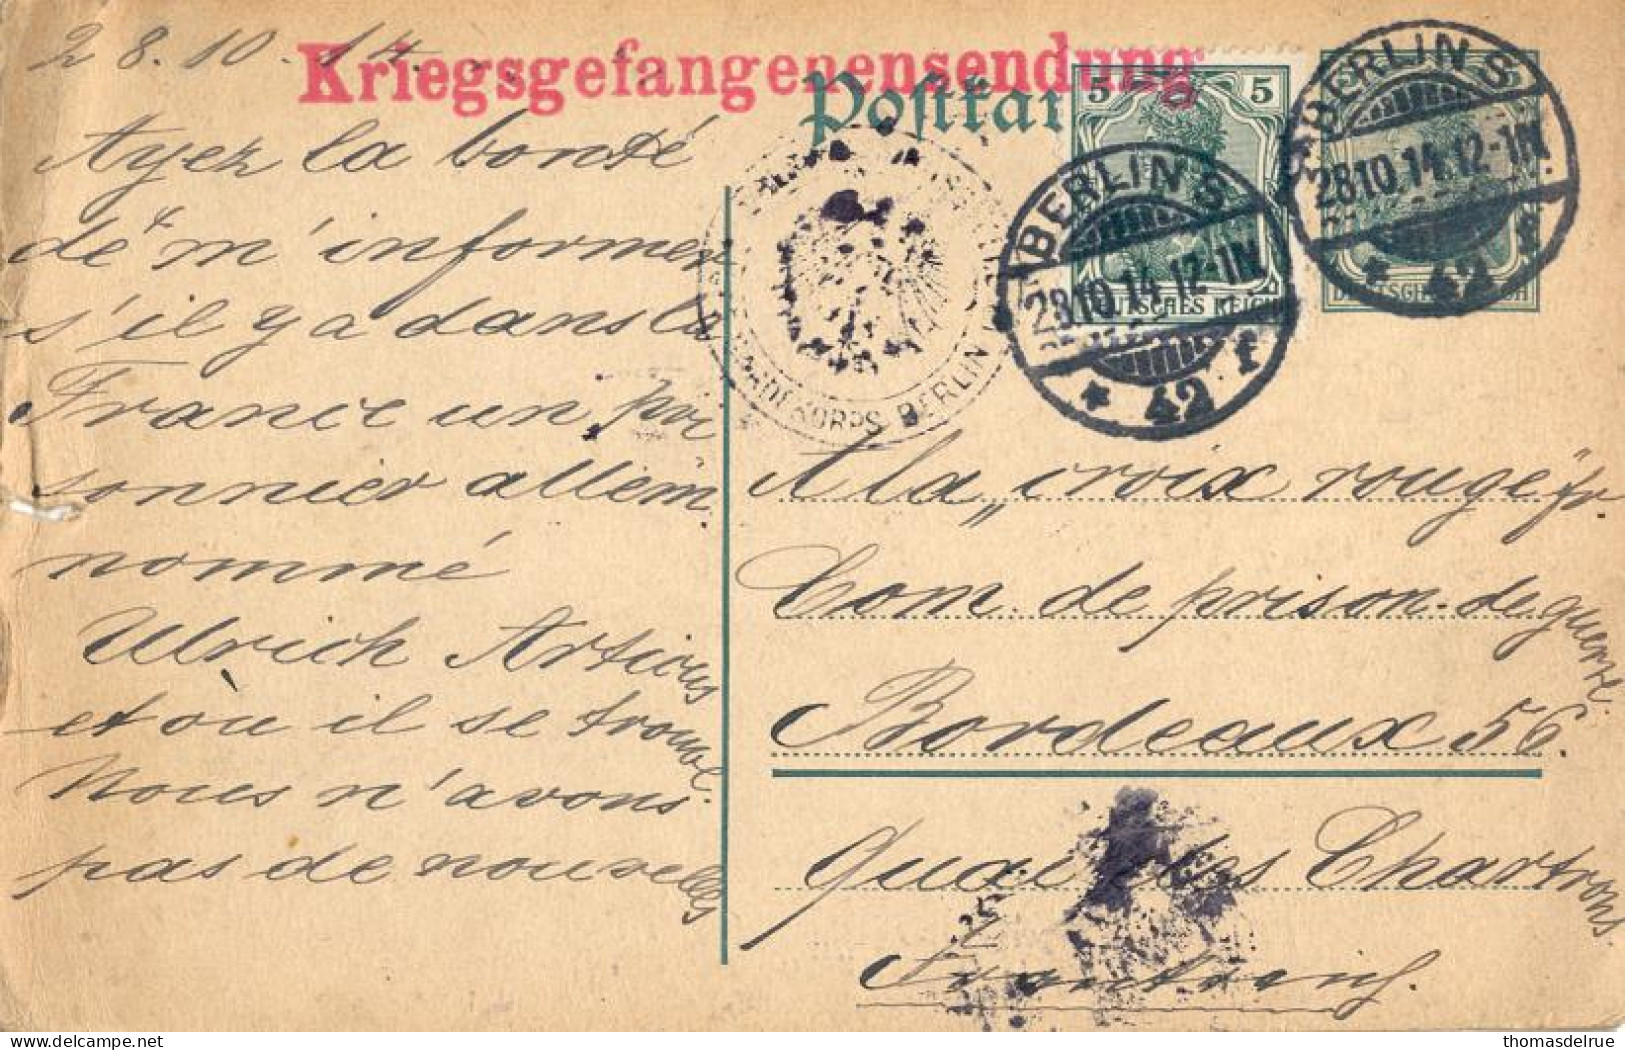 28.10.14.
Kriegsgefangenensendung
Postkar
5 5
DEUTSCHES REICH
BERLIN S
28.10.14.12-1N
* 42 f
5
BERLIN S
28.10.14.12-1N
* 42 f
GARDEKORPS BERLIN
Ayez la bonté
de m'informer
s'il y a dans la
France un pri
sonnier allem.
nommé
Ulrich Artius
et où il se trouve.
Nous n'avons
pas de nouvelles
A la „croix rouge" fr.
Com. de prison. de guerre.
Bordeaux 56.
Quai des Chartrons.
Frankreich.
thomasdelrue